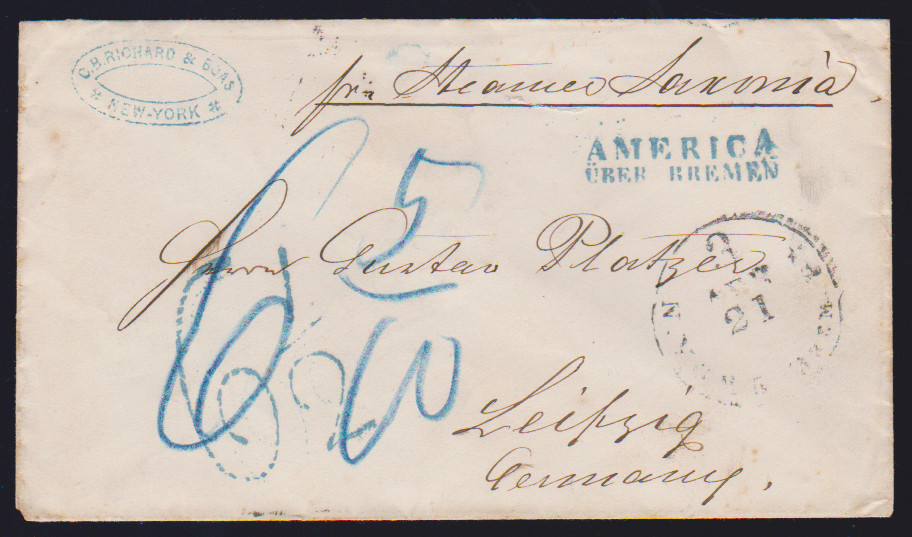 C.B. RICHARD & BOAS
* NEW-YORK *
pr. Steamer Saxonia,
AMERICA
ÜBER BREMEN
5
Herrn Gustav Platzer
21
6
10
Leipzig
Germany,